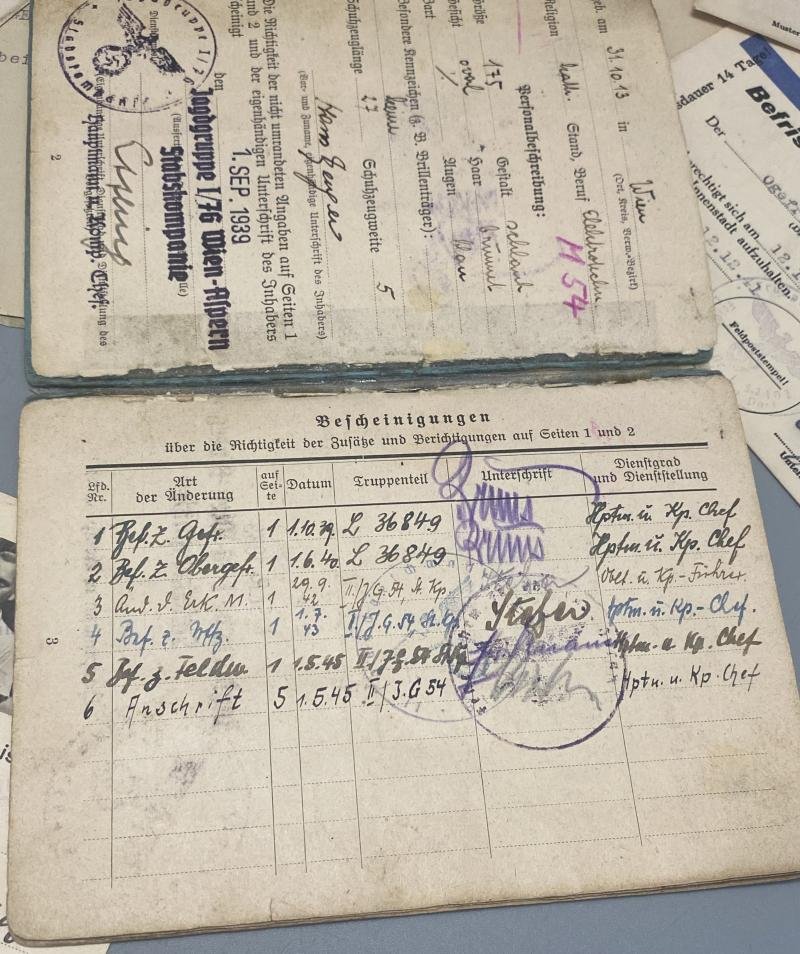 eb. am 31.10.13 in Wien
(Ort, Kreis, Verw.-Bezirk)
Religion kath. Stand, Beruf
M 54
Personalbeschreibung:
Größe 175 Gestalt schlank
Gesicht oval Haar brünett
Bart Augen blau
Besondere Kennzeichen (z. B. Brillenträger):
keine
Schuhzeuglänge 27 Schuhzeugweite 5
Hans
(Vor- und Zuname, eigenhändige Unterschrift des Inhabers)
Die Richtigkeit der nicht umrandeten Angaben auf Seiten 1
und 2 und der eigenhändigen Unterschrift des Inhabers
scheinigt
den 1. SEP. 1939
Jagdgruppe I/76 Wien-Aspern
Stabskompanie
Hauptmann u. Komp. Chef.
2
Bescheinigungen
über die Richtigkeit der Zusätze und Berichtigungen auf Seiten 1 und 2
Lfd. Nr. Art der Änderung auf Seite Datum Truppenteil Unterschrift Dienstgrad und Dienststellung
1 Bef. z. Gefr. 1 1.10.39. L 36849 Bruns Hptm. u. Kp. Chef
2 Bef. z. Obergefr. 1 1.6.40 L 36849 Bruns Hptm. u. Kp. Chef
3 Änd. d. Erk. M. 1 29.9.42 II/J.G.54, St. Kp. Oblt. u. Kp.-Führer
4 Bef. z. Uffz. 1 1.7.43 II/J.G.54, St. Kp. Hptm. u. Kp-Chef.
5 Bef. z. Feldw. 1 1.5.45 II/J.G.54 Hptm. u. Kp. Chef
6 Anschrift 5 1.5.45 II/J.G 54 Hptm. u. Kp. Chef
3
sdauer 14 Tage!
Befris
Der
Ogefr
rechtigt sich am 12.1
nenstadt aufzuhalten.
12.12.
Feldpoststempel
Muster